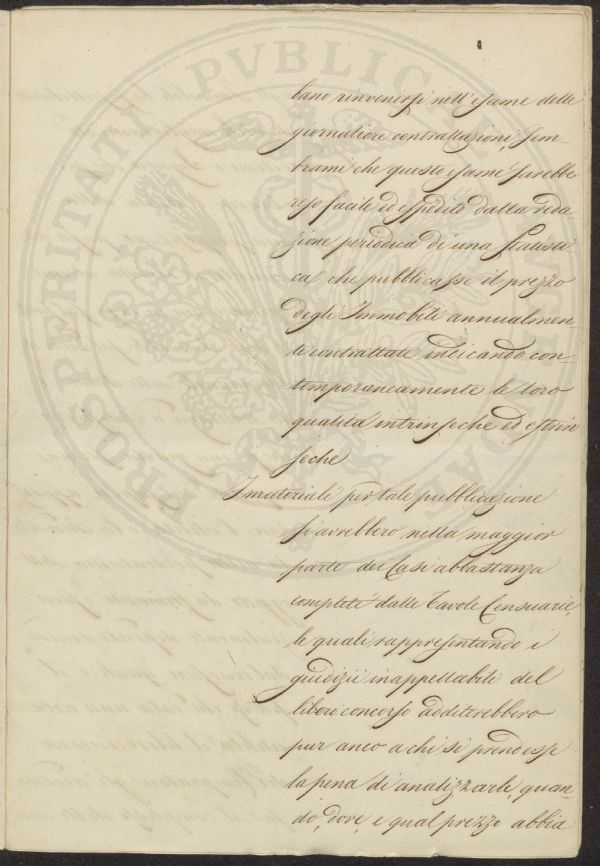 bano rinvenirsi nell'esame delle
giornaliere contrattazioni, sem-
brami che questo esame sarebbe
reso facile ed espedito dalla reda
zione periodica di una statisti
ca, che pubblicasse il prezzo
degli Immobili annualmen-
te contrattati indicando con-
temporaneamente le loro
qualità intrinseche ed estrin
seche
I materiali per tale pubblicazione
si avrebbero nella maggior
parte dei Casi abbastanza
completi dalle Tavole Censuarie,
le quali rappresentando i
giudizii inappellabili del
libero concorso additerebbero
pur anco a chi si prendesse
la pena di analizzarle, quan-
do, dove, e qual prezzo abbia
PROSPERITATI PVBLICAE